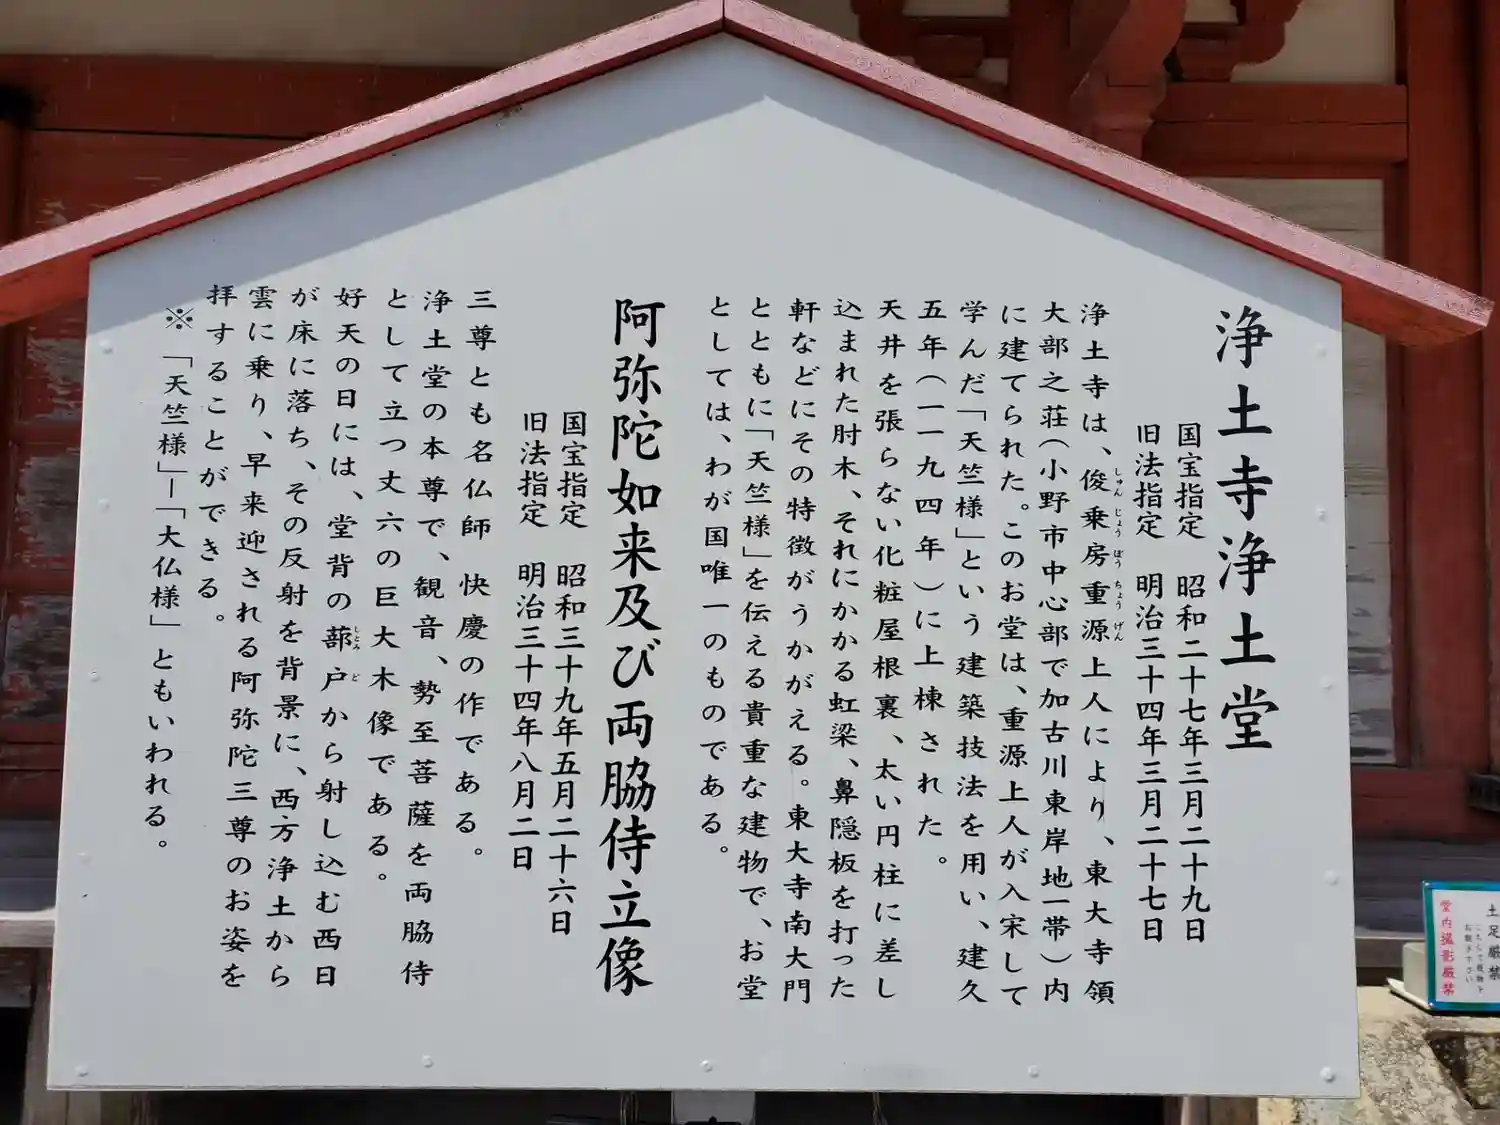 浄土寺浄土堂
国宝指定　昭和二十七年三月二十九日
旧法指定　明治三十四年三月二十七日
浄土寺は、俊乗房重源上人により、東大寺領
しゅんじょうぼうちょうげん
大部之荘（小野市中心部で加古川東岸地一帯）内
に建てられた。このお堂は、重源上人が入宋して
学んだ「天竺様」という建築技法を用い、建久
五年（一一九四年）に上棟された。
天井を張らない化粧屋根裏、太い円柱に差し
込まれた肘木、それにかかる虹梁、鼻隠板を打った
軒などにその特徴がうかがえる。東大寺南大門
とともに「天竺様」を伝える貴重な建物で、お堂
としては、わが国唯一のものである。
阿弥陀如来及び両脇侍立像
国宝指定　昭和三十九年五月二十六日
旧法指定　明治三十四年八月二日
三尊とも名仏師　快慶の作である。
浄土堂の本尊で、観音、勢至菩薩を両脇侍
として立つ丈六の巨大木像である。
好天の日には、堂背の蔀戸から射し込む西日
しとみど
が床に落ち、その反射を背景に、西方浄土から
雲に乗り、早来迎される阿弥陀三尊のお姿を
拝することができる。
※「天竺様」―「大仏様」ともいわれる。
土足厳禁
堂内撮影厳禁